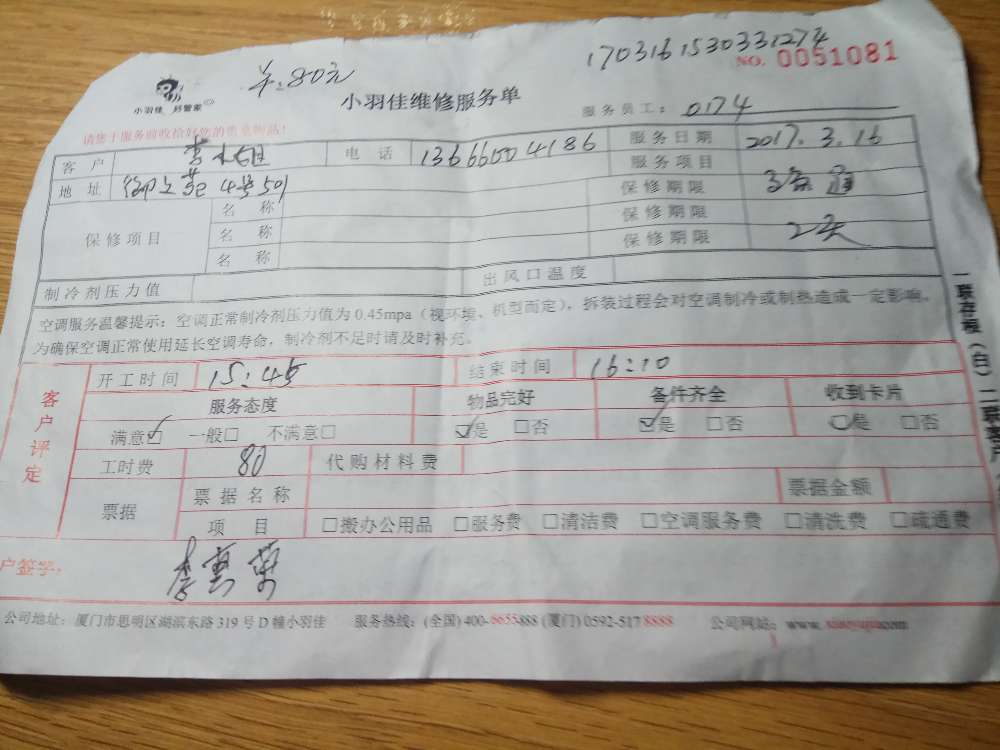 1703161530331274
单:80元
NO. 0051081
小羽佳 好管家
小羽佳维修服务单
服务员工: 0174
请您于服务前收拾好您的贵重物品!
客户 李小姐 电话 13666004186 服务日期 2017.3.16
地址 4号501 服务项目
保修项目 名称 保修期限
名称 保修期限
名称 保修期限 2天
制冷剂压力值 出风口温度
空调服务温馨提示:空调正常制冷剂压力值为0.45mpa(视环境、机型而定),拆装过程会对空调制冷或制热造成一定影响。
为确保空调正常使用延长空调寿命,制冷剂不足时请及时补充。
客户评定
开工时间 15:45 结束时间 16:10
服务态度 物品完好 备件齐全 收到卡片
满意☑ 一般□ 不满意□ ☑是 □否 ☑是 □否 是 □否
工时费 80 代购材料费
票据 票据名称 票据金额
项目 □搬办公用品 □服务费 □清洁费 □空调服务费 □清洗费 □疏通费
户签字:
公司地址:厦门市思明区湖滨东路319号D幢小羽佳 服务热线:(全国)400-6655888 (厦门)0592-5178888 公司网站:www.xiaoyujia.com
一联存根(白)二联客户